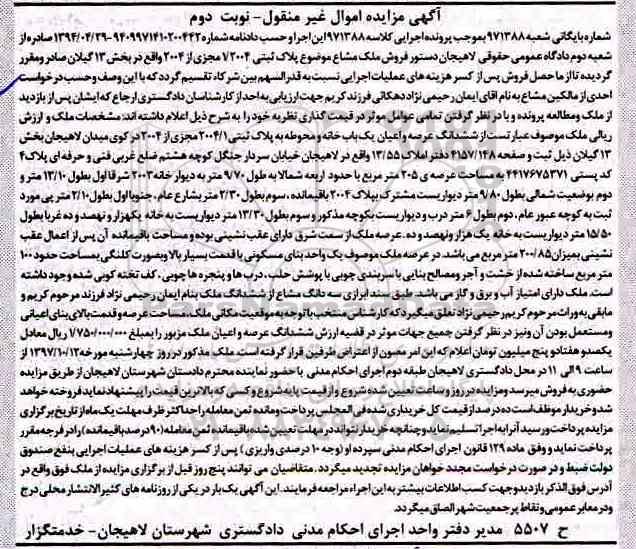 آگهی مزایده اموال غیر منقول - نوبت دوم
شماره بایگانی شعبه ۹۷۱۳۸۸ بموجب پرونده اجرایی کلاسه ۹۷۱۳۸۸ این اجرا و حسب دادنامه شماره ۹۴۰۹۹۷۱۴۱۰۲۰۰۴۴۲-۱۳۹۴/۰۴/۲۹ صادره از
شعبه دوم دادگاه عمومی حقوقی لاهیجان دستور فروش ملک مشاع موضوع پلاک ثبتی ۷/۲۰۰۴ مجزی از ۲۰۰۴ واقع در بخش ۱۳ گیلان صادر و مقرر
گردیده تا از ماحصل فروش پس از کسر هزینه های عملیات اجرایی نسبت به قدرالسهم بین شرکاء تقسیم گردد که با این وصف و حسب درخواست
احدی از مالکین مشاع به نام آقای ایمان رحیمی نژاد دهکائی فرزند کریم جهت ارزیابی به احد از کارشناسان دادگستری ارجاع که ایشان پس از بازدید
از ملک و مطالعه پرونده و با در نظر گرفتن تمامی عوامل موثر در قیمت گذاری نظریه خود را به شرح ذیل اعلام داشته اند: مشخصات ملک و ارزش
ریالی ملک موصوف عبارتست از ششدانگ عرصه و اعیان یک باب خانه و محوطه به پلاک ثبتی ۲۰۰۴/۱ مجزی از ۲۰۰۴ در کوی میدان لاهیجان بخش
۱۳ گیلان ذیل ثبت و صفحه ۴۱۵۷/۱۴۸ دفتر املاک ۱۳/۵۵ واقع در لاهیجان خیابان سردار جنگل کوچه هشتم ضلع غربی فنی و حرفه ای پلاک ۴
کد پستی ۴۴۱۷۶۷۵۳۷۱ به مساحت عرصه ی ۲۰۵ متر مربع با حدود اربعه شمالا به طول ۹/۷۰ متر به دیوار خانه ۲۰۰۳ شرقا اول بطول ۱۳/۱۰ متر و
دوم بوضعیت شمالی بطول ۹/۸۰ متر دیواریست مشترک با پلاک ۲۰۰۴ باقیمانده، سوم بطول ۲/۳۰ متر بشارع عام، جنوبا اول بطول ۲/۱۰ متر پی مورد
ثبت به کوچه عبور عام، دوم بطول ۶ متر درب و دیواریست بکوچه مذکور و سوم بطول ۱۳/۳۰ متر دیواریست به خانه یکهزار و نهصد و ده غربا بطول
۱۵/۵۰ متر دیواریست به خانه یک هزار و نهصد و ده. عرصه ملک از سمت شرق دارای عقب نشینی بوده و مساحت باقیمانده آن پس از اعمال عقب
نشینی بمیزان ۲۰۰/۸۵ متر مربع می باشد. در عرصه ملک موصوف یک واحد بنای مسکونی با قدمت بسیار بالا و بصورت کلنگی بمساحت حدود ۱۰۰
متر مربع ساخته شده از خشت و آجر و مصالح بنایی با سربندی چوبی با پوشش حلب، درب ها و پنجره ها چوبی، کف تخته کوبی شده وجود داشته
است. ملک دارای امتیاز آب و برق و گاز می باشد. طبق سند ابرازی سه دانگ مشاع از ششدانگ ملک بنام ایمان رحیمی نژاد فرزند مرحوم کریم و
مابقی به وراث مرحوم کریم رحیمی نژاد تعلق میگیرد که کارشناس منتخب با توجه به موقعیت مکانی ملک، مساحت عرصه و قدمت بالای بنای اعیانی
و مستعمل بودن آن و نیز در نظر گرفتن جمیع جهات موثر در قضیه ارزش ششدانگ عرصه و اعیان ملک مزبور را بمبلغ ۱/۷۵۰/۰۰۰/۰۰۰ ریال معادل
یکصد و هفتاد و پنج میلیون تومان اعلام که این امر مصون از اعتراض طرفین قرار گرفته است. ملک مذکور در روز چهارشنبه مورخه ۱۳۹۷/۱۰/۱۲ از
ساعت ۹ الی ۱۱ در محل دادگستری لاهیجان طبقه دوم اجرای احکام مدنی با حضور نماینده محترم دادستان شهرستان لاهیجان از طریق مزایده
حضوری به فروش میرسد و مزایده در روز و ساعت تعیین شده شروع و از قیمت پایه شروع و کسی که بالاترین قیمت را پیشنهاد نماید فروخته خواهد
شد و خریدار موظف است ده درصد از قیمت کل خریداری شده فی المجلس پرداخت و مانده ثمن معامله را حداکثر ظرف مهلت یک ماه از تاریخ برگزاری
مزایده پرداخت و رسید آنرا به اجرا تسلیم نماید و چنانچه خریدار نتواند در مهلت تعیین شده باقیمانده ثمن معامله (۹۰ درصد باقیمانده) را در فرجه مقرر
پرداخت نماید و وفق ماده ۱۲۹ قانون اجرای احکام مدنی سپرده او (وجه ۱۰ درصدی واریزی) پس از کسر هزینه های عملیات اجرایی بنفع صندوق
دولت ضبط و در صورت درخواست مجدد خواهان مزایده تجدید میگردد. متقاضیان می توانند پنج روز قبل از برگزاری مزایده از ملک فوق واقع در
آدرس فوق الذکر بازدید و جهت کسب اطلاعات بیشتر به این اجراء مراجعه فرمایند. این آگهی یک بار در یکی از روزنامه های کثیر الانتشار محلی درج
و در معابر عمومی و نقاط پرجمعیت شهر الصاق میگردد.
ح ۵۵۰۷ مدیر دفتر واحد اجرای احکام مدنی دادگستری شهرستان لاهیجان - خدمتگزار